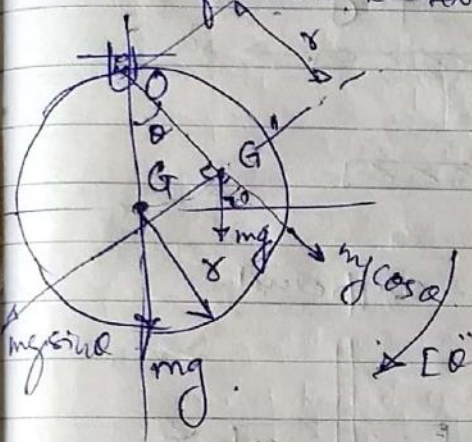 r
O
θ
G'
G
θ
mg
r
mg cosθ
mg sinθ
mg.
[θ̈